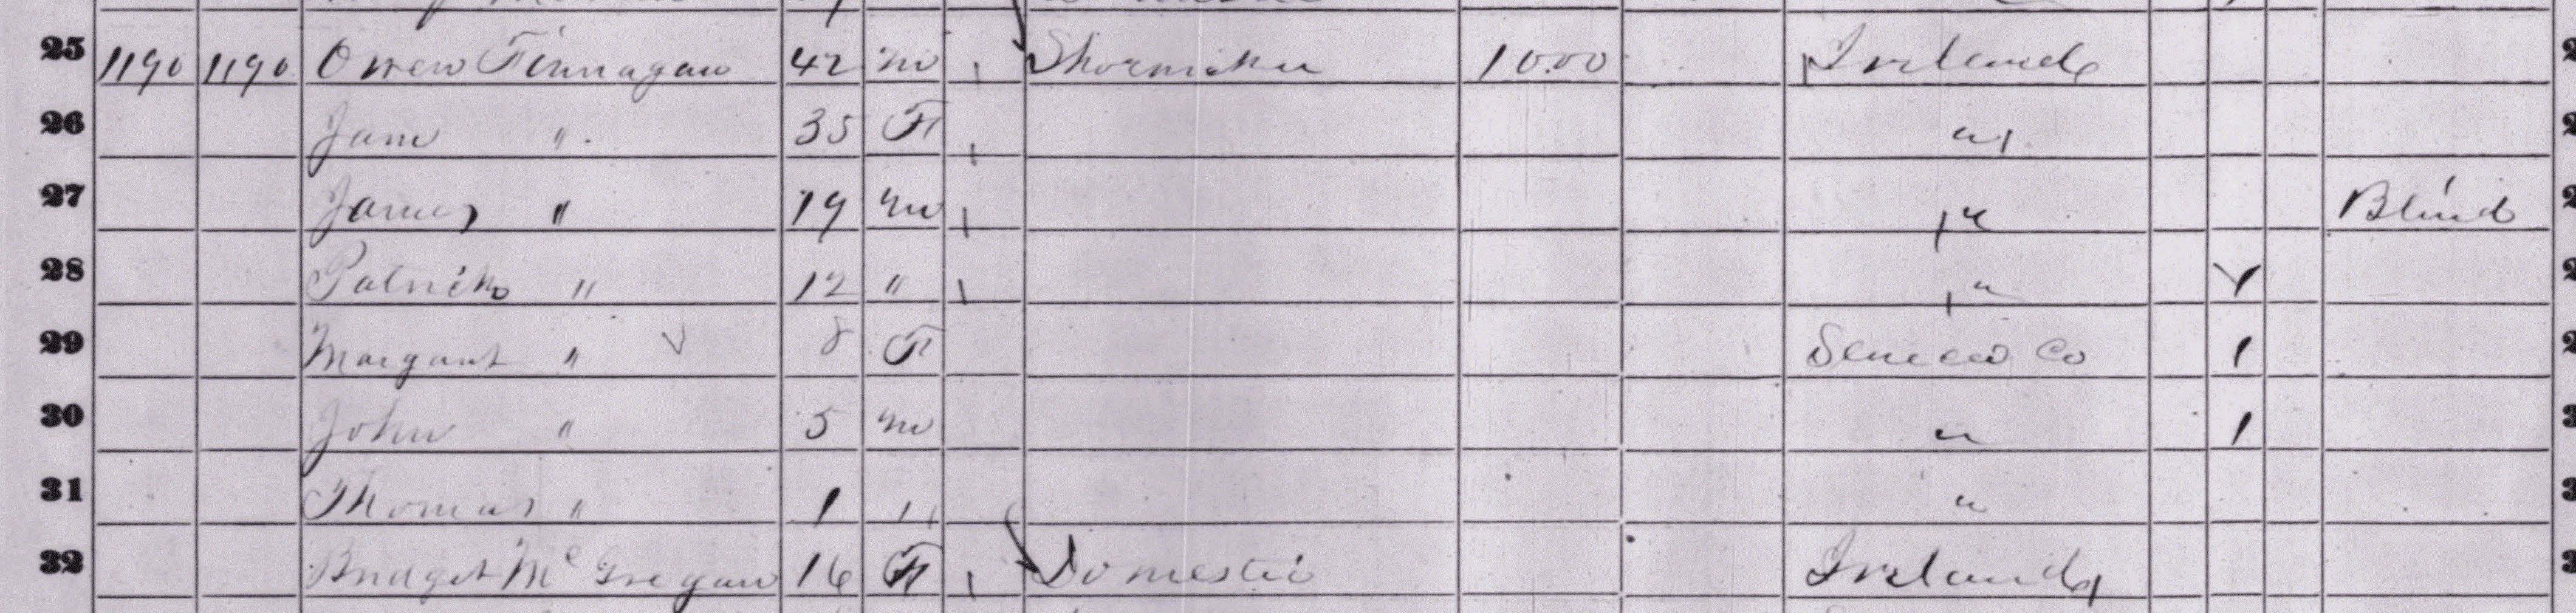 25 1190 1190 Owen Finnagan 42 m Shoemaker 1000 Ireland
26 Jane " 35 F "
27 James " 19 m " Blind
28 Patrick " 12 " " 1
29 Margaret " 8 F Seneca Co 1
30 John " 5 m " 1
31 Thomas " 1 " "
32 Bridget McGregan 16 F Domestic Ireland